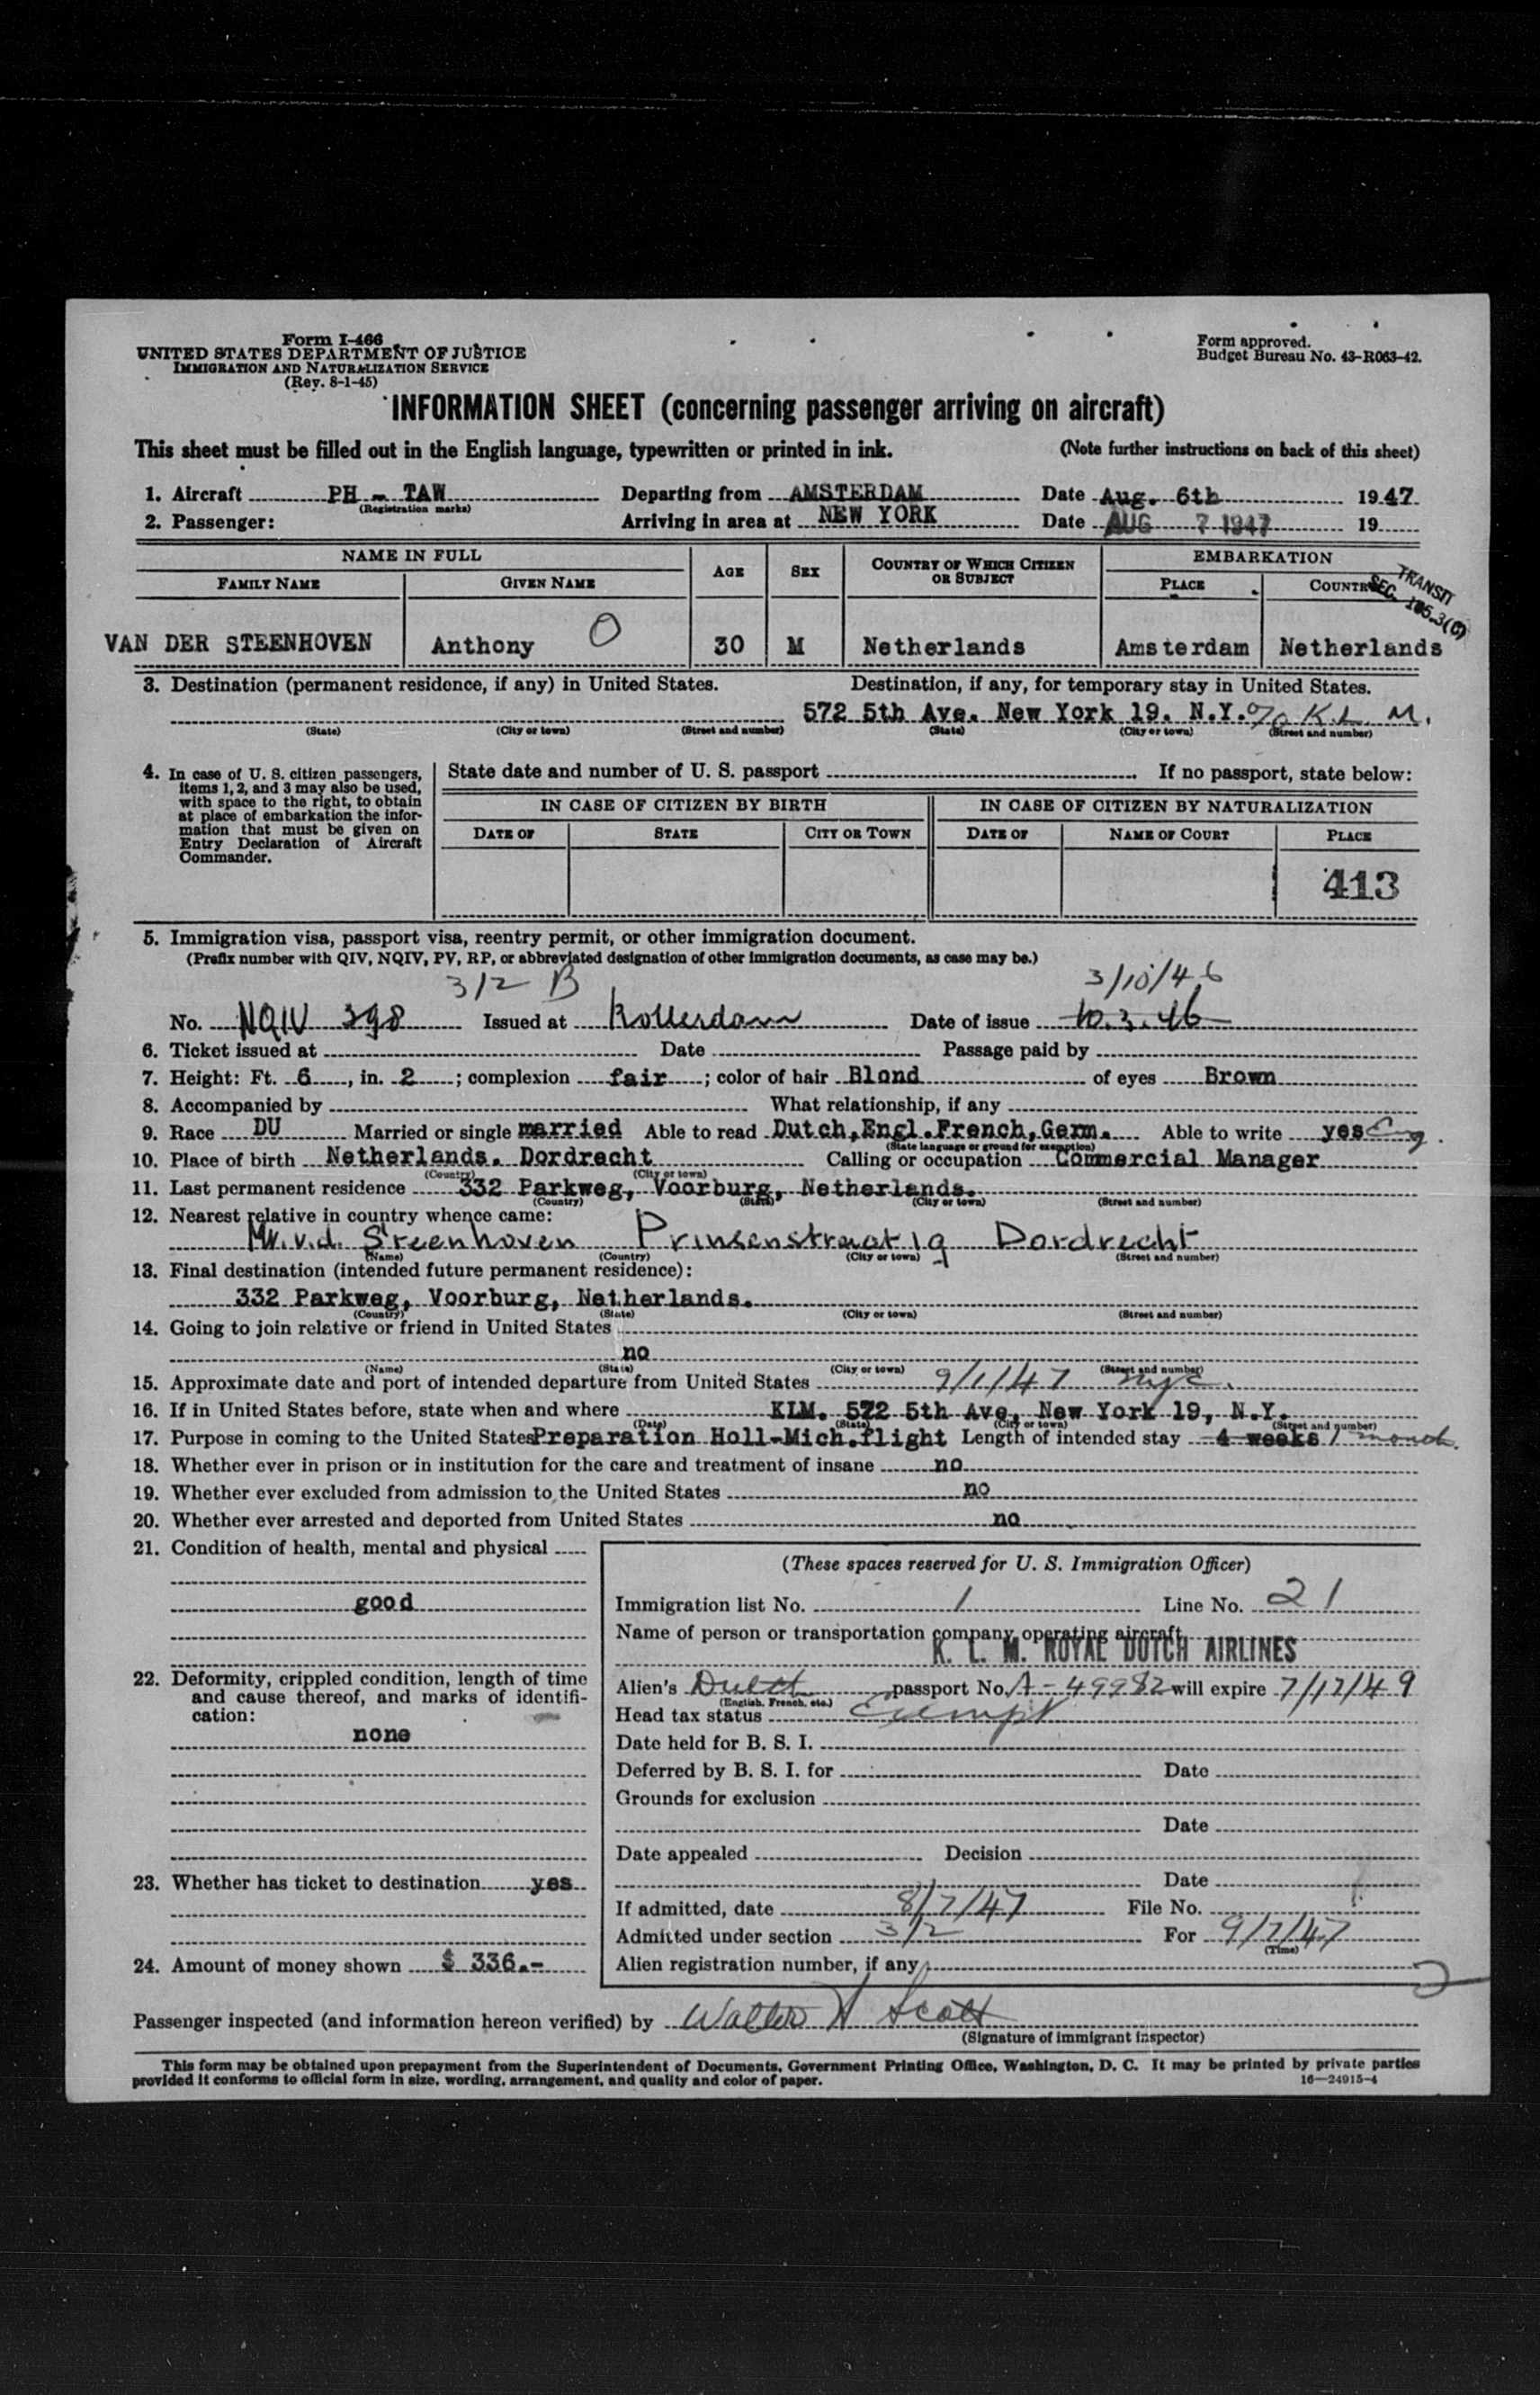 Form I-466
UNITED STATES DEPARTMENT OF JUSTICE
IMMIGRATION AND NATURALIZATION SERVICE
(Rev. 8-1-45)
Form approved.
Budget Bureau No. 43-R063-42.
INFORMATION SHEET (concerning passenger arriving on aircraft)
This sheet must be filled out in the English language, typewritten or printed in ink. (Note further instructions on back of this sheet)
1. Aircraft PH - TAW Departing from AMSTERDAM Date Aug. 6th 1947
(Registration marks)
2. Passenger: Arriving in area at NEW YORK Date AUG 7 1947 19
NAME IN FULL AGE SEX COUNTRY OF WHICH CITIZEN OR SUBJECT EMBARKATION
FAMILY NAME GIVEN NAME PLACE COUNTRY
TRANSIT
SEC. 105.3(C)
VAN DER STEENHOVEN Anthony O 30 M Netherlands Amsterdam Netherlands
3. Destination (permanent residence, if any) in United States. Destination, if any, for temporary stay in United States.
572 5th Ave. New York 19. N.Y. c/o K.L.M.
(State) (City or town) (Street and number) (State) (City or town) (Street and number)
4. In case of U. S. citizen passengers, items 1, 2, and 3 may also be used, with space to the right, to obtain at place of embarkation the information that must be given on Entry Declaration of Aircraft Commander.
State date and number of U. S. passport If no passport, state below:
IN CASE OF CITIZEN BY BIRTH IN CASE OF CITIZEN BY NATURALIZATION
DATE OF STATE CITY OR TOWN DATE OF NAME OF COURT PLACE
413
5. Immigration visa, passport visa, reentry permit, or other immigration document.
(Prefix number with QIV, NQIV, PV, RP, or abbreviated designation of other immigration documents, as case may be.)
3/2 B 3/10/46
No. NQIV 398 Issued at Rotterdam Date of issue 10.3.46
6. Ticket issued at Date Passage paid by
7. Height: Ft. 6, in. 2; complexion fair; color of hair Blond of eyes Brown
8. Accompanied by What relationship, if any
9. Race DU Married or single married Able to read Dutch,Engl.French,Germ. Able to write yes Eng.
(State language or ground for exemption)
10. Place of birth Netherlands. Dordrecht Calling or occupation Commercial Manager
(Country) (City or town)
11. Last permanent residence 332 Parkweg, Voorburg, Netherlands.
(Country) (State) (City or town) (Street and number)
12. Nearest relative in country whence came:
Mr. v.d. Steenhoven Prinsenstraat 19 Dordrecht
(Name) (Country) (City or town) (Street and number)
13. Final destination (intended future permanent residence):
332 Parkweg, Voorburg, Netherlands.
(Country) (State) (City or town) (Street and number)
14. Going to join relative or friend in United States
no
(Name) (State) (City or town) (Street and number)
15. Approximate date and port of intended departure from United States 9/1/47 nyc.
16. If in United States before, state when and where KLM. 572 5th Ave, New York 19, N.Y.
(Date) (State) (City or town) (Street and number)
17. Purpose in coming to the United States Preparation Holl-Mich.flight Length of intended stay 4 weeks 1 month.
18. Whether ever in prison or in institution for the care and treatment of insane no
19. Whether ever excluded from admission to the United States no
20. Whether ever arrested and deported from United States no
21. Condition of health, mental and physical
good
22. Deformity, crippled condition, length of time and cause thereof, and marks of identification:
none
23. Whether has ticket to destination yes
24. Amount of money shown $ 336.-
(These spaces reserved for U. S. Immigration Officer)
Immigration list No. 1 Line No. 21
Name of person or transportation company operating aircraft
K. L. M. ROYAL DUTCH AIRLINES
Alien's Dutch passport No. A-49982 will expire 7/17/49
(English, French, etc.)
Head tax status Exempt
Date held for B. S. I.
Deferred by B. S. I. for Date
Grounds for exclusion
Date
Date appealed Decision
Date
If admitted, date 8/7/47 File No.
Admitted under section 3/2 For 9/7/47
(Time)
Alien registration number, if any
Passenger inspected (and information hereon verified) by Walter A Scott
(Signature of immigrant inspector)
This form may be obtained upon prepayment from the Superintendent of Documents, Government Printing Office, Washington, D. C. It may be printed by private parties
provided it conforms to official form in size, wording, arrangement, and quality and color of paper. 16—24915-4